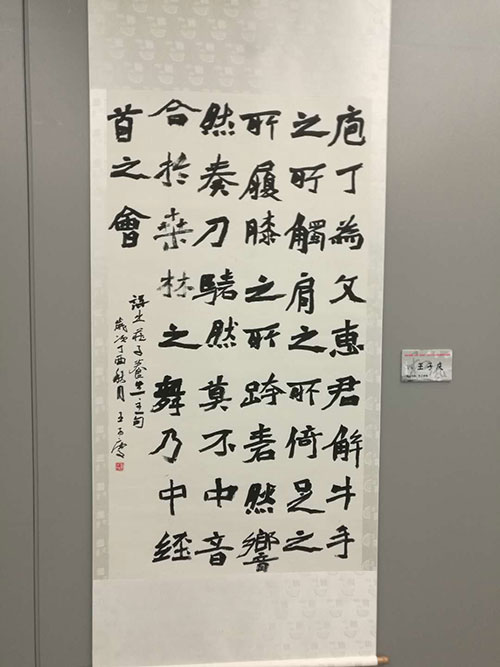 庖丁為文惠君解牛手
之所觸肩之所倚足之
所履膝之所踦砉然響
然奏刀騞然莫不中音
合於桑林之舞乃中經
首之會
莊子養生主句
歲次丁酉秋月王子
王子